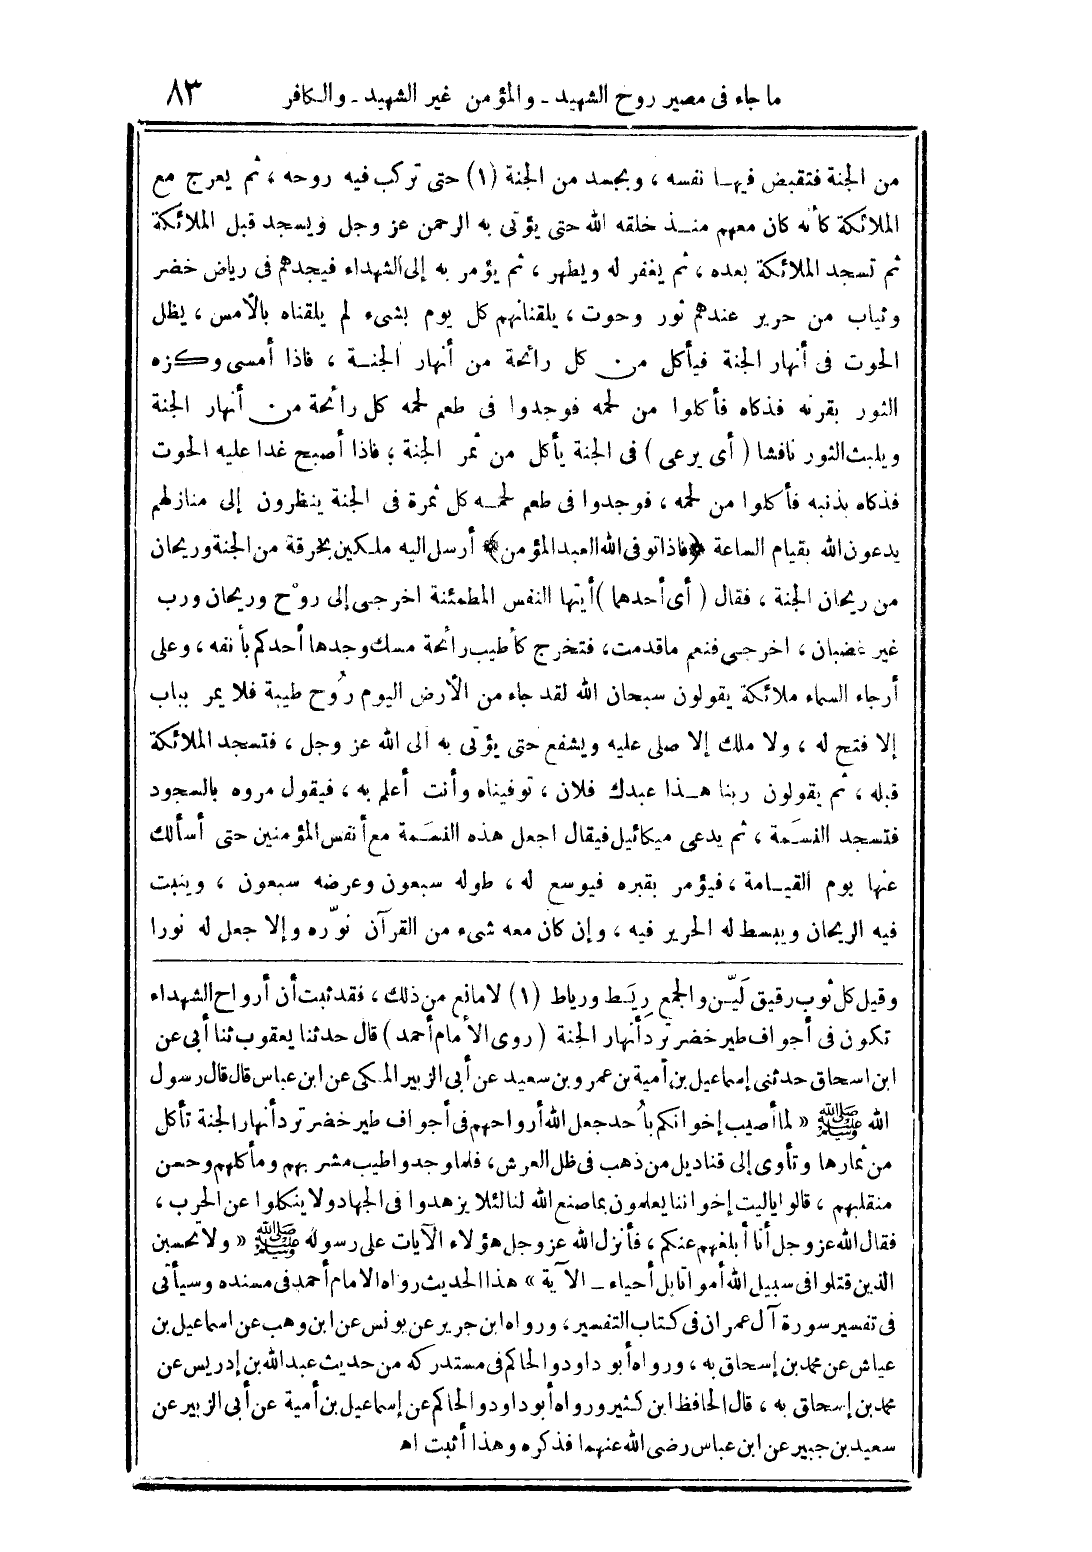 ما جاء فى مصير روح الشهيد ـ والمؤمن غير الشهيد ـ والكافر ٨٣
من الجنة فتقبض فيها نفسه ، وبجسد من الجنة (١) حتى تركب فيه روحه ، ثم يعرج مع
الملائكة كأنه كان معهم منذ خلقه الله حتى يؤتى به الرحمن عز وجل ويسجد قبل الملائكة
ثم تسجد الملائكة بعده ، ثم يغفر له ويطهر ، ثم يؤمر به إلى الشهداء فيجدهم فى رياض خضر
وثياب من حرير عندهم ثور وحوت ، يلقنانهم كل يوم بشىء لم يلقناه بالأمس ، يظل
الحوت فى أنهار الجنة فيأكل من كل رائحة من أنهار الجنة ، فاذا أمسى وكزه
الثور بقرنه فذكاه فأكلوا من لحمه فوجدوا فى طعم لحمه كل رائحة من أنهار الجنة
ويلبث الثور نافشا ( أى يرعى ) فى الجنة يأكل من ثمر الجنة ؛ فاذا أصبح غدا عليه الحوت
فذكاه بذنبه فأكلوا من لحمه ، فوجدوا فى طعم لحمه كل ثمرة فى الجنة ينظرون إلى منازلهم
يدعون الله بقيام الساعة ﴿فاذا توفى الله العبد المؤمن﴾ أرسل اليه ملكين بخرقة من الجنة وريحان
من ريحان الجنة ، فقال ( أى أحدهما ) أيتها النفس المطمئنة اخرجى إلى روْح وريحان ورب
غير غضبان ، اخرجى فنعم ما قدمت، فتخرج كأطيب رائحة مسك وجدها أحدكم بأنفه ، وعلى
أرجاء السماء ملائكة يقولون سبحان الله لقد جاء من الأرض اليوم رُوح طيبة فلا يمر بباب
إلا فتح له ، ولا ملك إلا صلى عليه ويشفع حتى يؤتى به الى الله عز وجل ، فتسجد الملائكة
قبله ، ثم يقولون ربنا هذا عبدك فلان ، توفيناه وأنت أعلم به ، فيقول مروه بالسجود
فتسجد النسَمة ، ثم يدعى ميكائيل فيقال اجعل هذه النسَمة مع أنفس المؤمنين حتى أسألك
عنها يوم القيامة ، فيؤمر بقبره فيوسع له ، طوله سبعون وعرضه سبعون ، وينبت
فيه الريحان ويبسط له الحرير فيه ، وإن كان معه شىء من القرآن نوّره وإلا جعل له نورا
وقيل كل ثوب رقيق لَيّن والجمع رِيَط ورياط (١) لا مانع من ذلك ، فقد ثبت أن أرواح الشهداء
تكون فى أجواف طير خضر ترد أنهار الجنة ( روى الأمام أحمد ) قال حدثنا يعقوب ثنا أبى عن
ابن اسحاق حدثنى إسماعيل بن أمية بن عمرو بن سعيد عن أبى الزبير المكى عن ابن عباس قال قال رسول
الله ﷺ « لما أصيب إخوانكم بأُحد جعل الله أرواحهم فى أجواف طير خضر ترد أنهار الجنة تأكل
من ثمارها وتأوى إلى قناديل من ذهب فى ظل العرش، فلما وجدوا طيب مشربهم ومأكلهم وحسن
منقلبهم ، قالوا ياليت إخواننا يعلمون بما صنع الله لنا لئلا يزهدوا فى الجهاد ولا ينكلوا عن الحرب ،
فقال الله عز وجل أنا أبلغهم عنكم ، فأنزل الله عز وجل هؤلاء الآيات على رسوله ﷺ « ولا تحسبن
الذين قتلوا فى سبيل الله أمواتا بل أحياء ـ الآية » هذا الحديث رواه الامام أحمد فى مسنده وسيأتى
فى تفسير سورة آل عمران فى كتاب التفسير ، ورواه ابن جرير عن يونس عن ابن وهب عن اسماعيل بن
عياش عن محمد بن إسحاق به ، ورواه أبو داود والحاكم فى مستدركه من حديث عبد الله بن إدريس عن
محمد بن إسحاق به ، قال الحافظ ابن كثير ورواه أبو داود والحاكم عن إسماعيل بن أمية عن أبى الزبير عن
سعيد بن جبير عن ابن عباس رضى الله عنهما فذكره وهذا أثبت اه